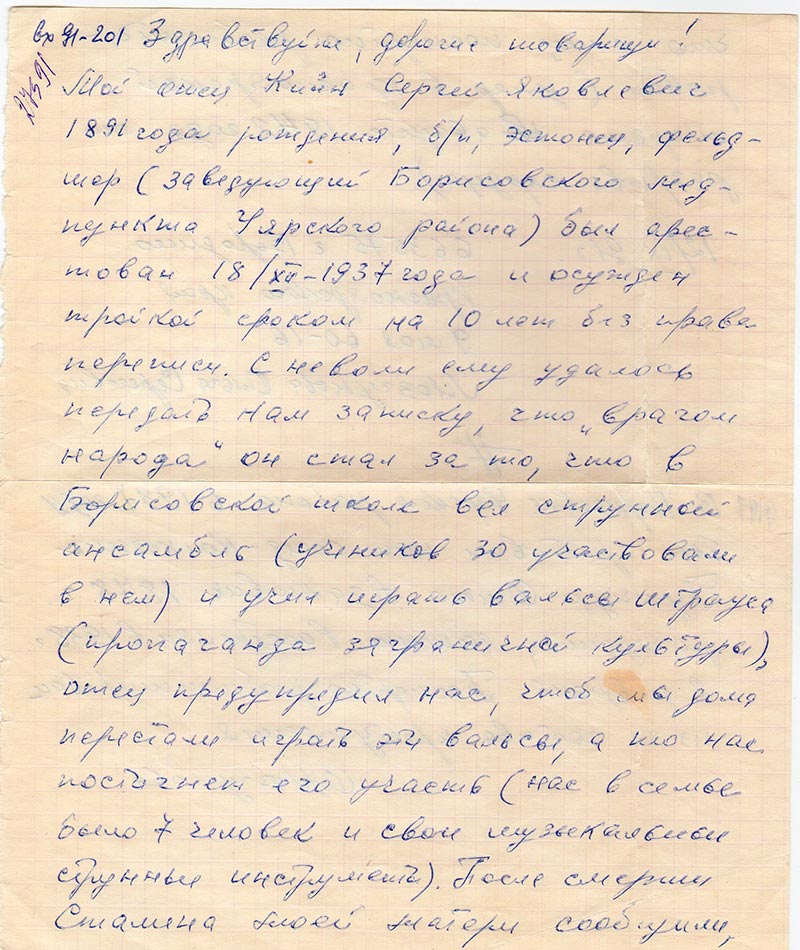 вх 91-201 Здравствуйте, дорогие товарищи!
27.5.91
Мой отец Кийн Сергей Яковлевич
1891 года рождения, б/п, эстонец, фельд-
шер (заведующий Борисовского мед-
пункта Уярского района) был арес-
тован 18/XII-1937 года и осужден
тройкой сроком на 10 лет без права
переписи. С неволи ему удалось
передать нам записку, что „врагом
народа" он стал за то, что в
Борисовской школе вел струнный
ансамбль (учеников 30 участвовали
в нем) и учил играть вальсы Штрауса
(пропаганда заграничной культуры),
отец предупредил нас, чтоб мы дома
перестали играть эти вальсы, а то нас
постигнет его участь (нас в семье
было 7 человек и свои музыкальные
струнные инструменты). После смерти
Сталина моей матери сообщили,